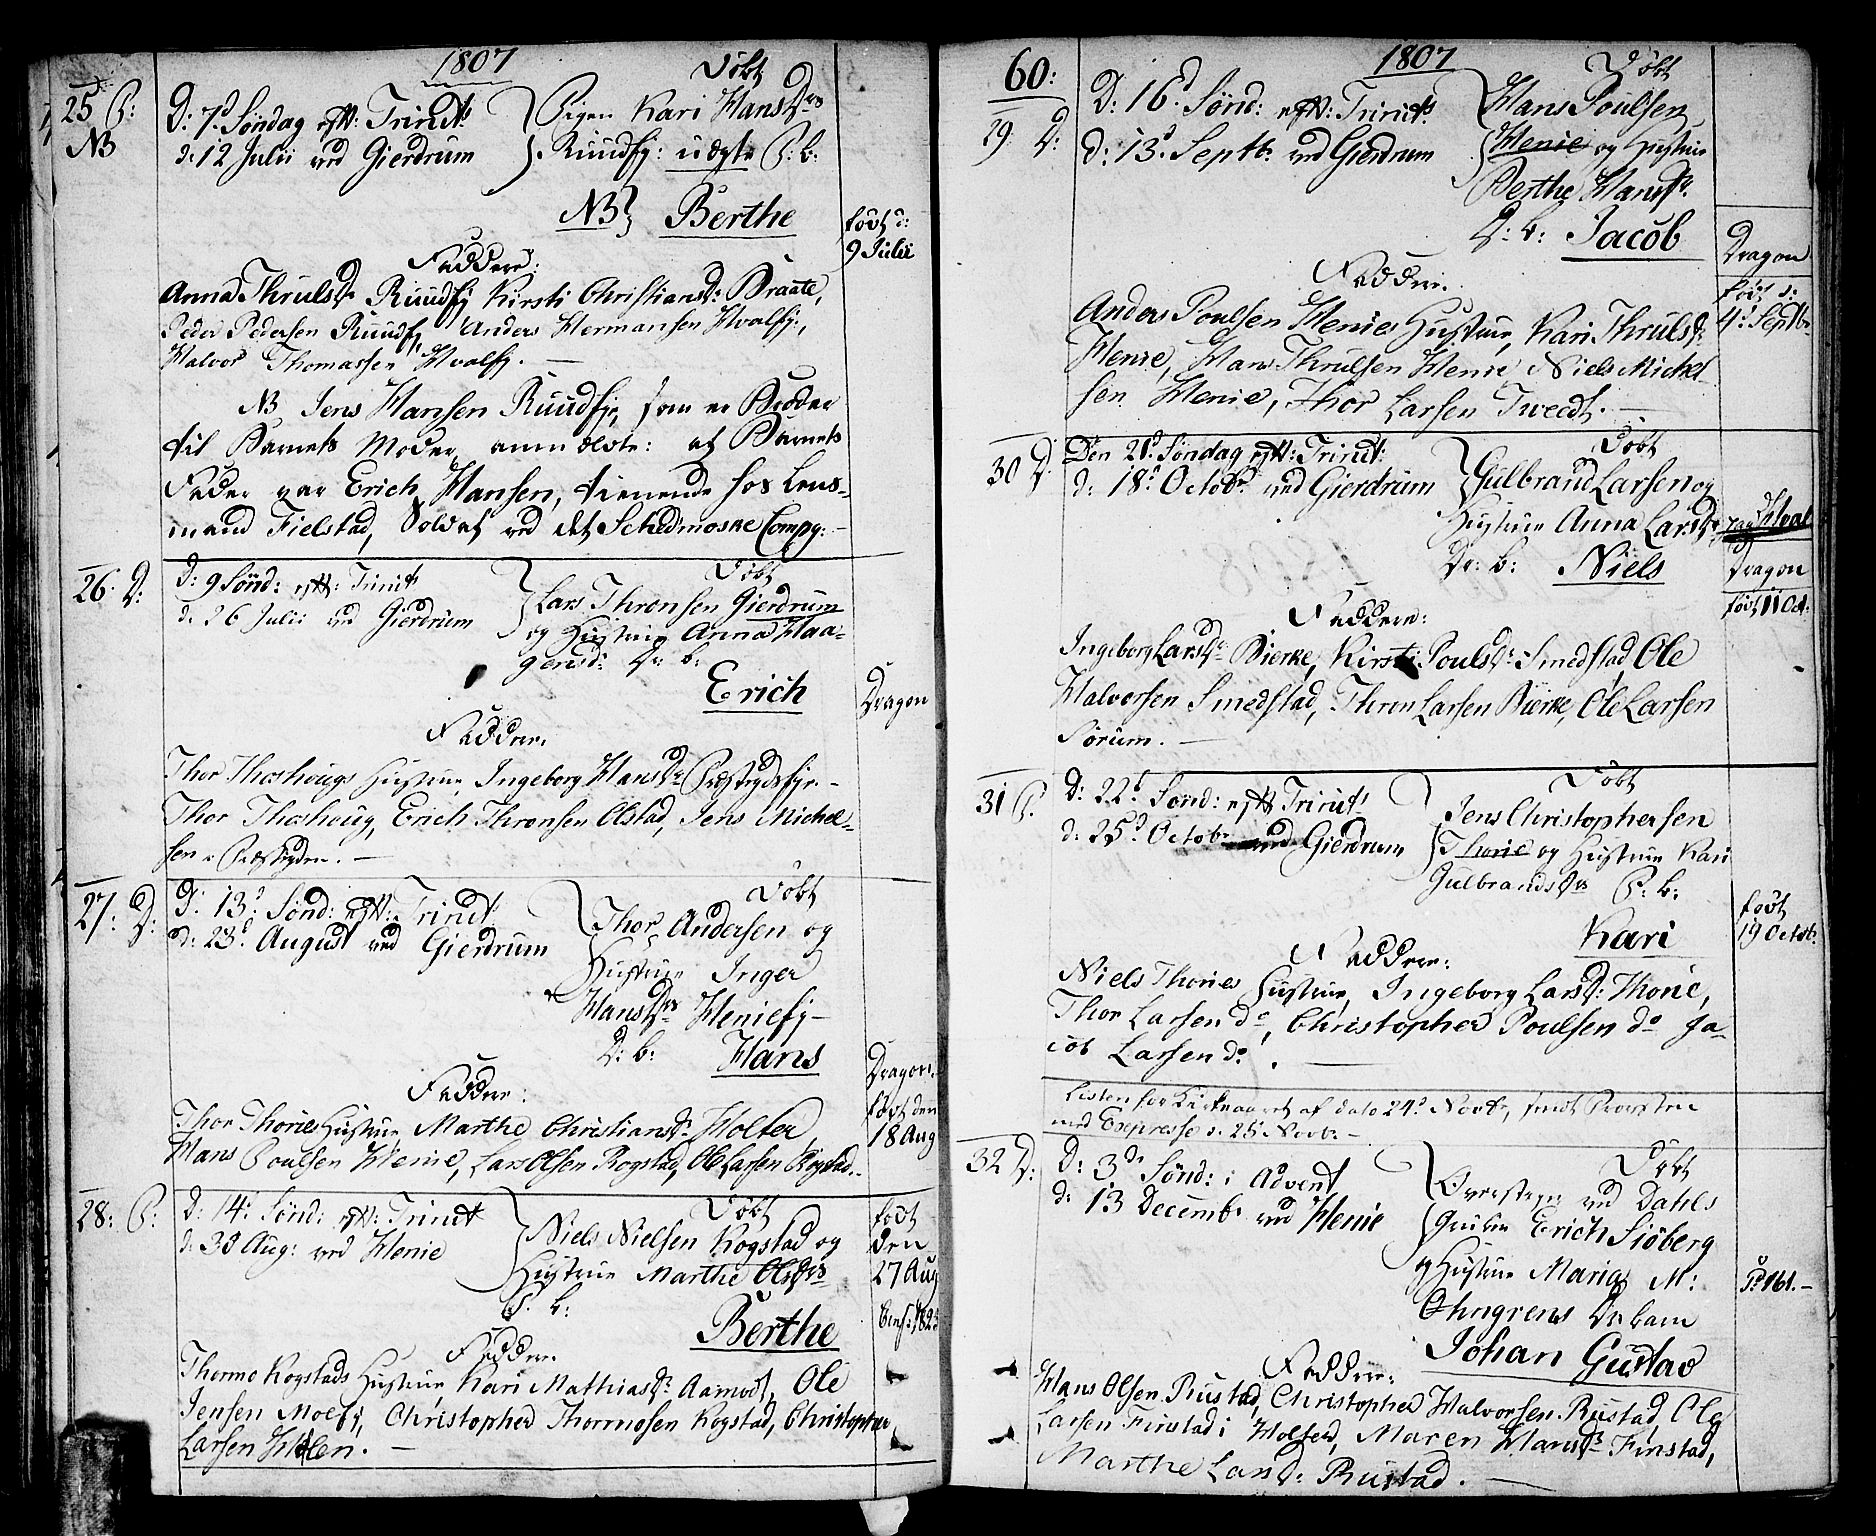 1807
25 P: Døbt
NB
D: 7d Søndag eft: Trinit: Pigen Kari HansDr
d: 12 Julii ved Gierdrum Ruudfj: uægte P: b:
NB Berthe
født d:
9 Julii
Faddere:
Anna ThrulsDr Ruudfj Kirsti ChristiansD: Braate,
Peder Pedersen Ruudfj, Anders Hermansen Hvalfj:,
Halvor Thomassen Hvalfj. —
NB Jens Hansen Ruudfj, som er Broder
til Barnets Moder, anmeldte: at Barnets
Fader var Erich Hansen, tienende hos Lens-
mand Fielstad, Soldat ved det Schedmoske Compg: —
26: D: D: 9 Sønd: eft: Trinit: Døbt
d: 26 Julii ved Gierdrum Lars Thronsen Gierdrum
og Hustrue Anna Haa-
gensD: Dr: b:
Erich
Dragon
Faddere.
Thor Thoshougs Hustrue, Ingeborg HansDr Præstegdsfj. —
Thor Thoshoug, Erich Thronsen Olstad, Jens Michel-
sen Præstegden. —
27: D: D: 13d: Sønd: eft: Trinit: Døbt
d: 23d August ved Gierdrum Thor Andersen og
Hustrue Inger
HansDr Heniefj —
D: b: Hans
Dragon.
født den
18 Aug
Faddere:
Thor Thories Hustrue, Marthe ChristiansD: Holter,
Hans Poulsen Henie, Lars Olsen Rogstad, Ole Larsen Rogstad. —
28: P: D: 14d Sønd: eft: Trinit: Døbt
d: 30 Aug: ved Henie Niels Nielsen Kogstad og
Hustrue Marthe OlsDr
P. b:
Berthe
født
den
27 Aug
1823
Faddere.
Thormo Kogstads Hustrue Kari MathiasD: Aamodt, Ole
Jensen Moefj, Christopher Thormosen Kogstad, Christopher
Larsen Holen. —
60: 1807
29. D: D: 16d Sønd: eft: Trinit: Døbt
d: 13d Septb: ved Gierdrum Hans Poulsen
Henie og Hustrue
Berthe HansDr.
D: b: Jacob
Dragon
født d:
4d Septbr
Faddere.
Anders Poulsen Henies Hustrue, Kari ThrulsD:
Henie, Hans Thrulsen Henie Niels Michel-
sen Henie, Thor Larsen Tweedt. —
30 D: Den 21d Søndag eft: Trinit: Døbt
d: 18d Octobr ved Gierdrum Gulbrand Larsen og
Hustrue Anna LarsDr
Dr: b: Niels
Hval
Dragon
født 11 Oct:
Faddere:
Ingeborg LarsDr Bierke, Kirsti PoulsDr Smedstad, Ole
Halvorsen Smedstad, Thron Larsen Bierke, Ole Larsen
Sørum. —
31 P. D: 22d Sønd: eft: Trinit: Døbt
d: 25d Octobr ved Gierdrum Jens Christophersen
Thorie og Hustrue Kari
GulbrandsDr P: b:
Kari
født
19 Octob:
Faddere:
Niels Thories Hustrue, Ingeborg LarsD: Thorie,
Thor Larsen do, Christopher Poulsen do Ja-
cob Larsen do. —
Listen for Kirkeaaret af dato 24d Novbr, sendt Provsten
med Expresse d: 25 Novbr —
32 D: D: 3de Sønd: i Advent Døbt
d: 13 Decembr ved Henie ved Dahls
Gruber Erich Siøberg
og Hustrue Maria M:
Ohngrens Dr: barn
Johan Gustav
161. —
Faddere:
Hans Olsen Rustad, Christopher Halvorsen Rustad, Ole
Larsen Finstad i Holter, Maren HansDr Finstad,
Marthe LarsD: Rustad. —